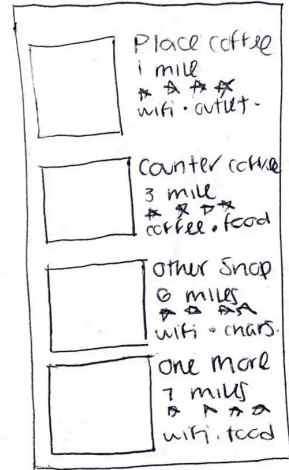 Place coffee
1 mile
wifi · outlet
Counter coffee
3 mile
coffee · food
other Shop
6 miles
wifi · chars.
one more
7 miles
wifi · food